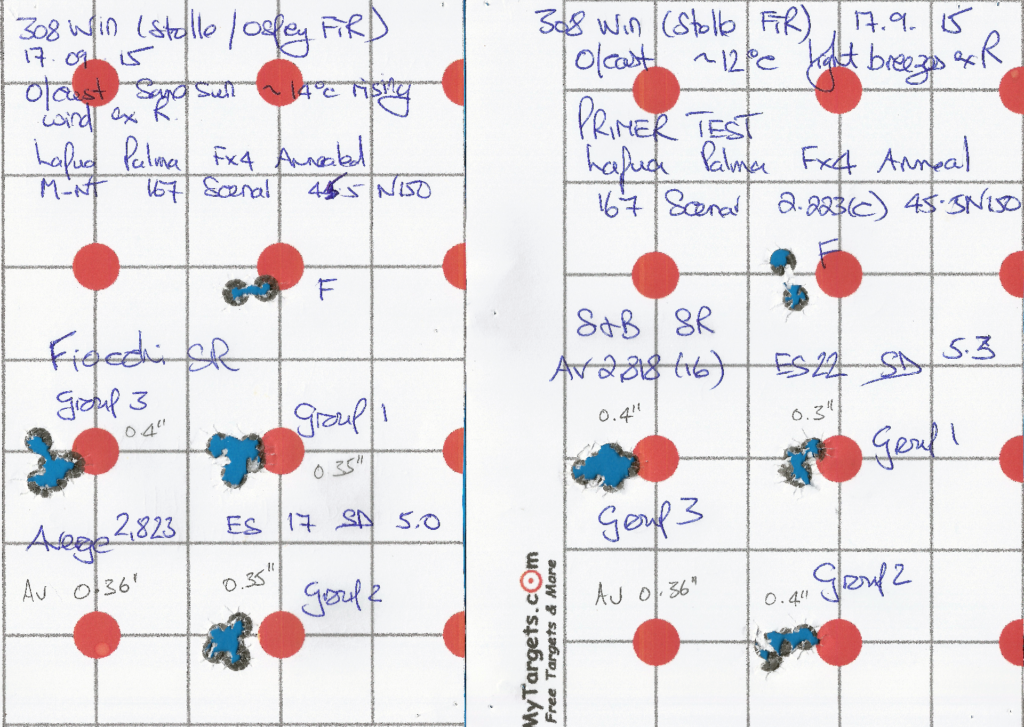 308 Win (Stolle / Osprey FTR)
17.09 15
O/cast Some Sun ~14°c rising
wind ex R.
Lapua Palma Fx4 Annealed
M-NT 167 Scenar 45.5 N150
F
Fiocchi SR
Group 3
0.4"
Group 1
0.35"
Average 2,823 ES 17 SD 5.0
Av 0.36"
0.35"
Group 2
308 Win (Stolle FTR) 17.9.15
O/cast ~12°c light breezes ex R
PRIMER TEST
Lapua Palma Fx4 Anneal
167 Scenar 2.223(c) 45.5 N150
F
S&B SR
Av 2,818 (16) ES 22 SD 5.3
0.4"
0.3"
Group 1
Group 3
Av 0.36"
0.4"
Group 2
MyTargets.com
Free Targets & More